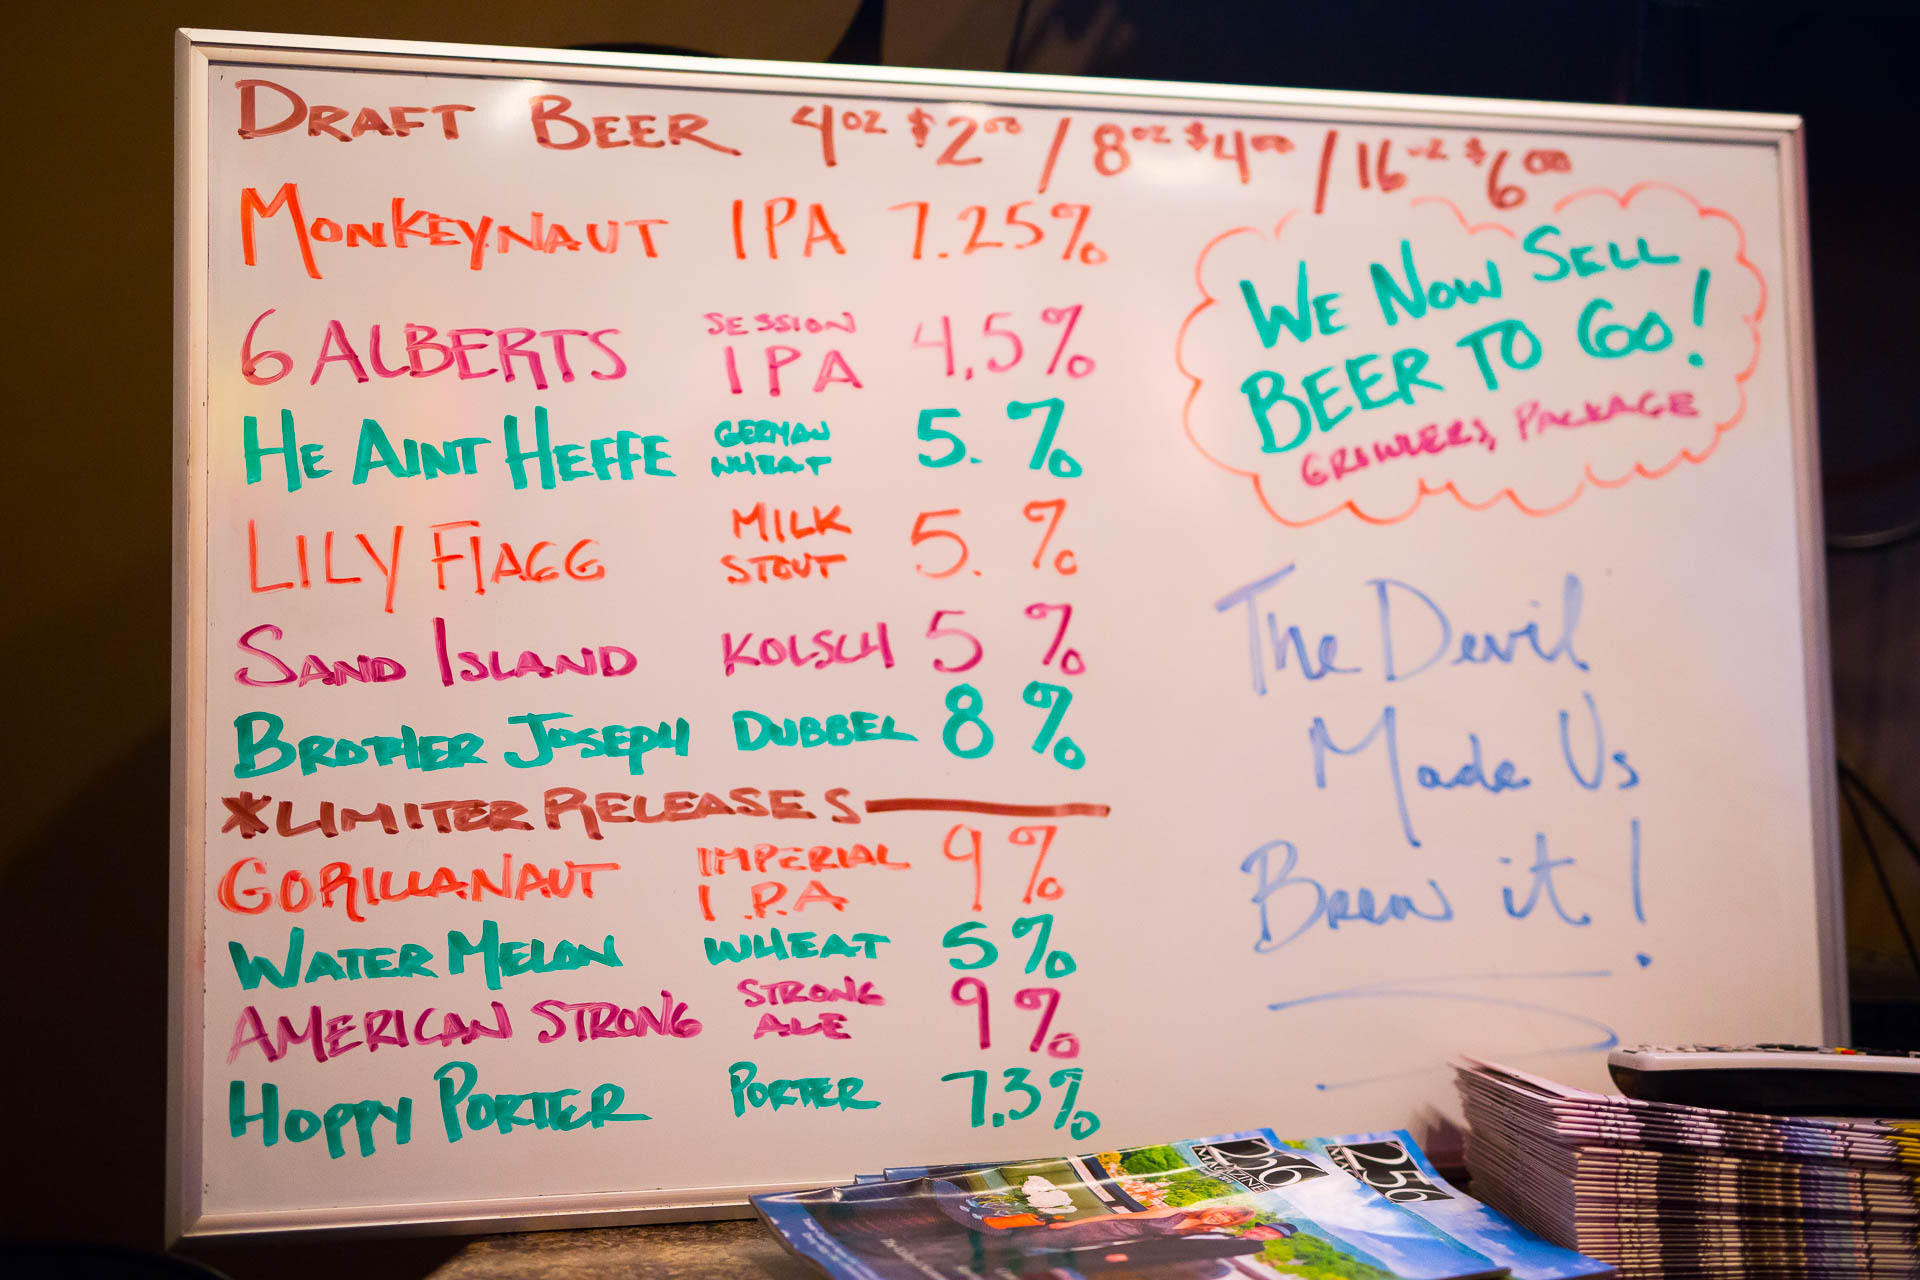 DRAFT BEER 4oz $2.00 / 8oz $4.00 / 16oz $6.00
MONKEYNAUT IPA 7.25%
6 ALBERTS SESSION IPA 4.5%
HE AINT HEFFE GERMAN WHEAT 5. %
LILY FlAGG MILK STOUT 5. %
SAND ISLAND KOLSCH 5 %
BROTHER JOSEPH DUBBEL 8 %
*LIMITER RELEASES
GORILLANAUT IMPERIAL I.P.A 9%
WATER MELON WHEAT 5%
AMERICAN STRONG STRONG ALE 9%
HOPPY PORTER PORTER 7.3%
WE NOW SELL
BEER TO GO!
GROWLERS, PACKAGE
The Devil
Made Us
Brew it!
256
MAGAZINE
256